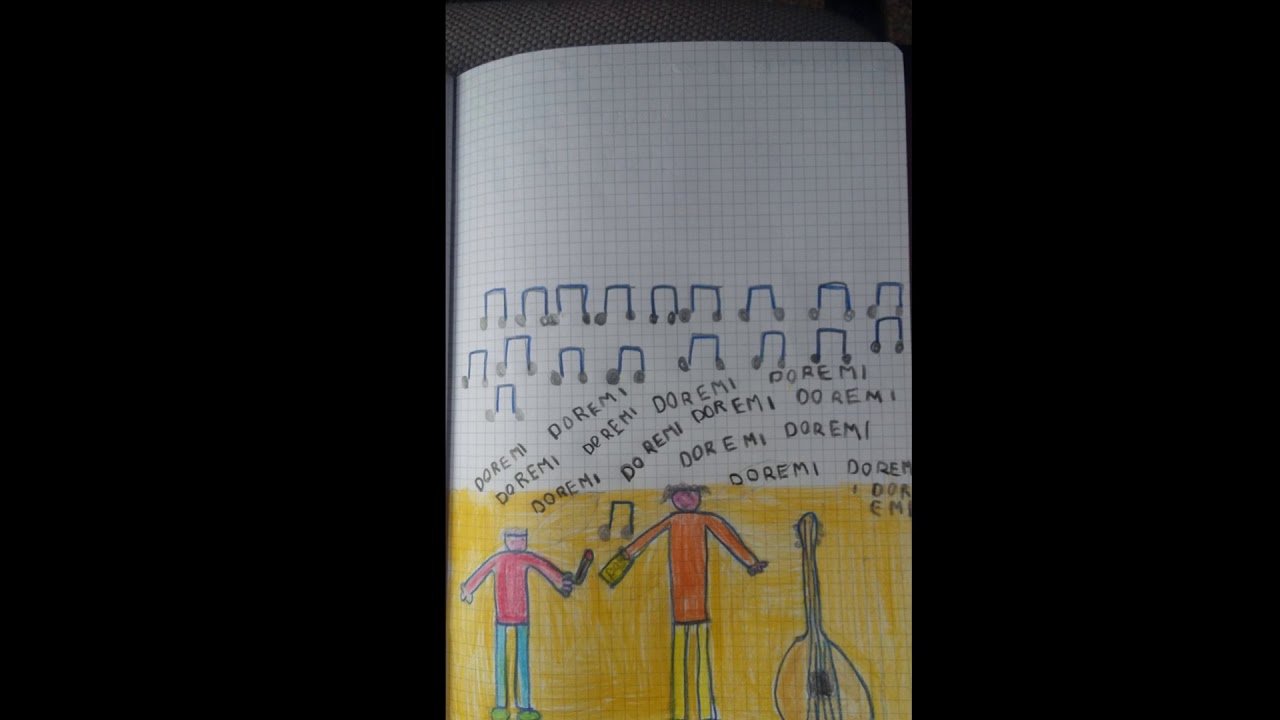 DOREMI DOREMI
DOREMI DOREMI DOREMI DOREMI
DOREMI DOREMI DOREMI DOREMI
DOREMI DOREMI
DOREMI DOREM
I DOR
EMI